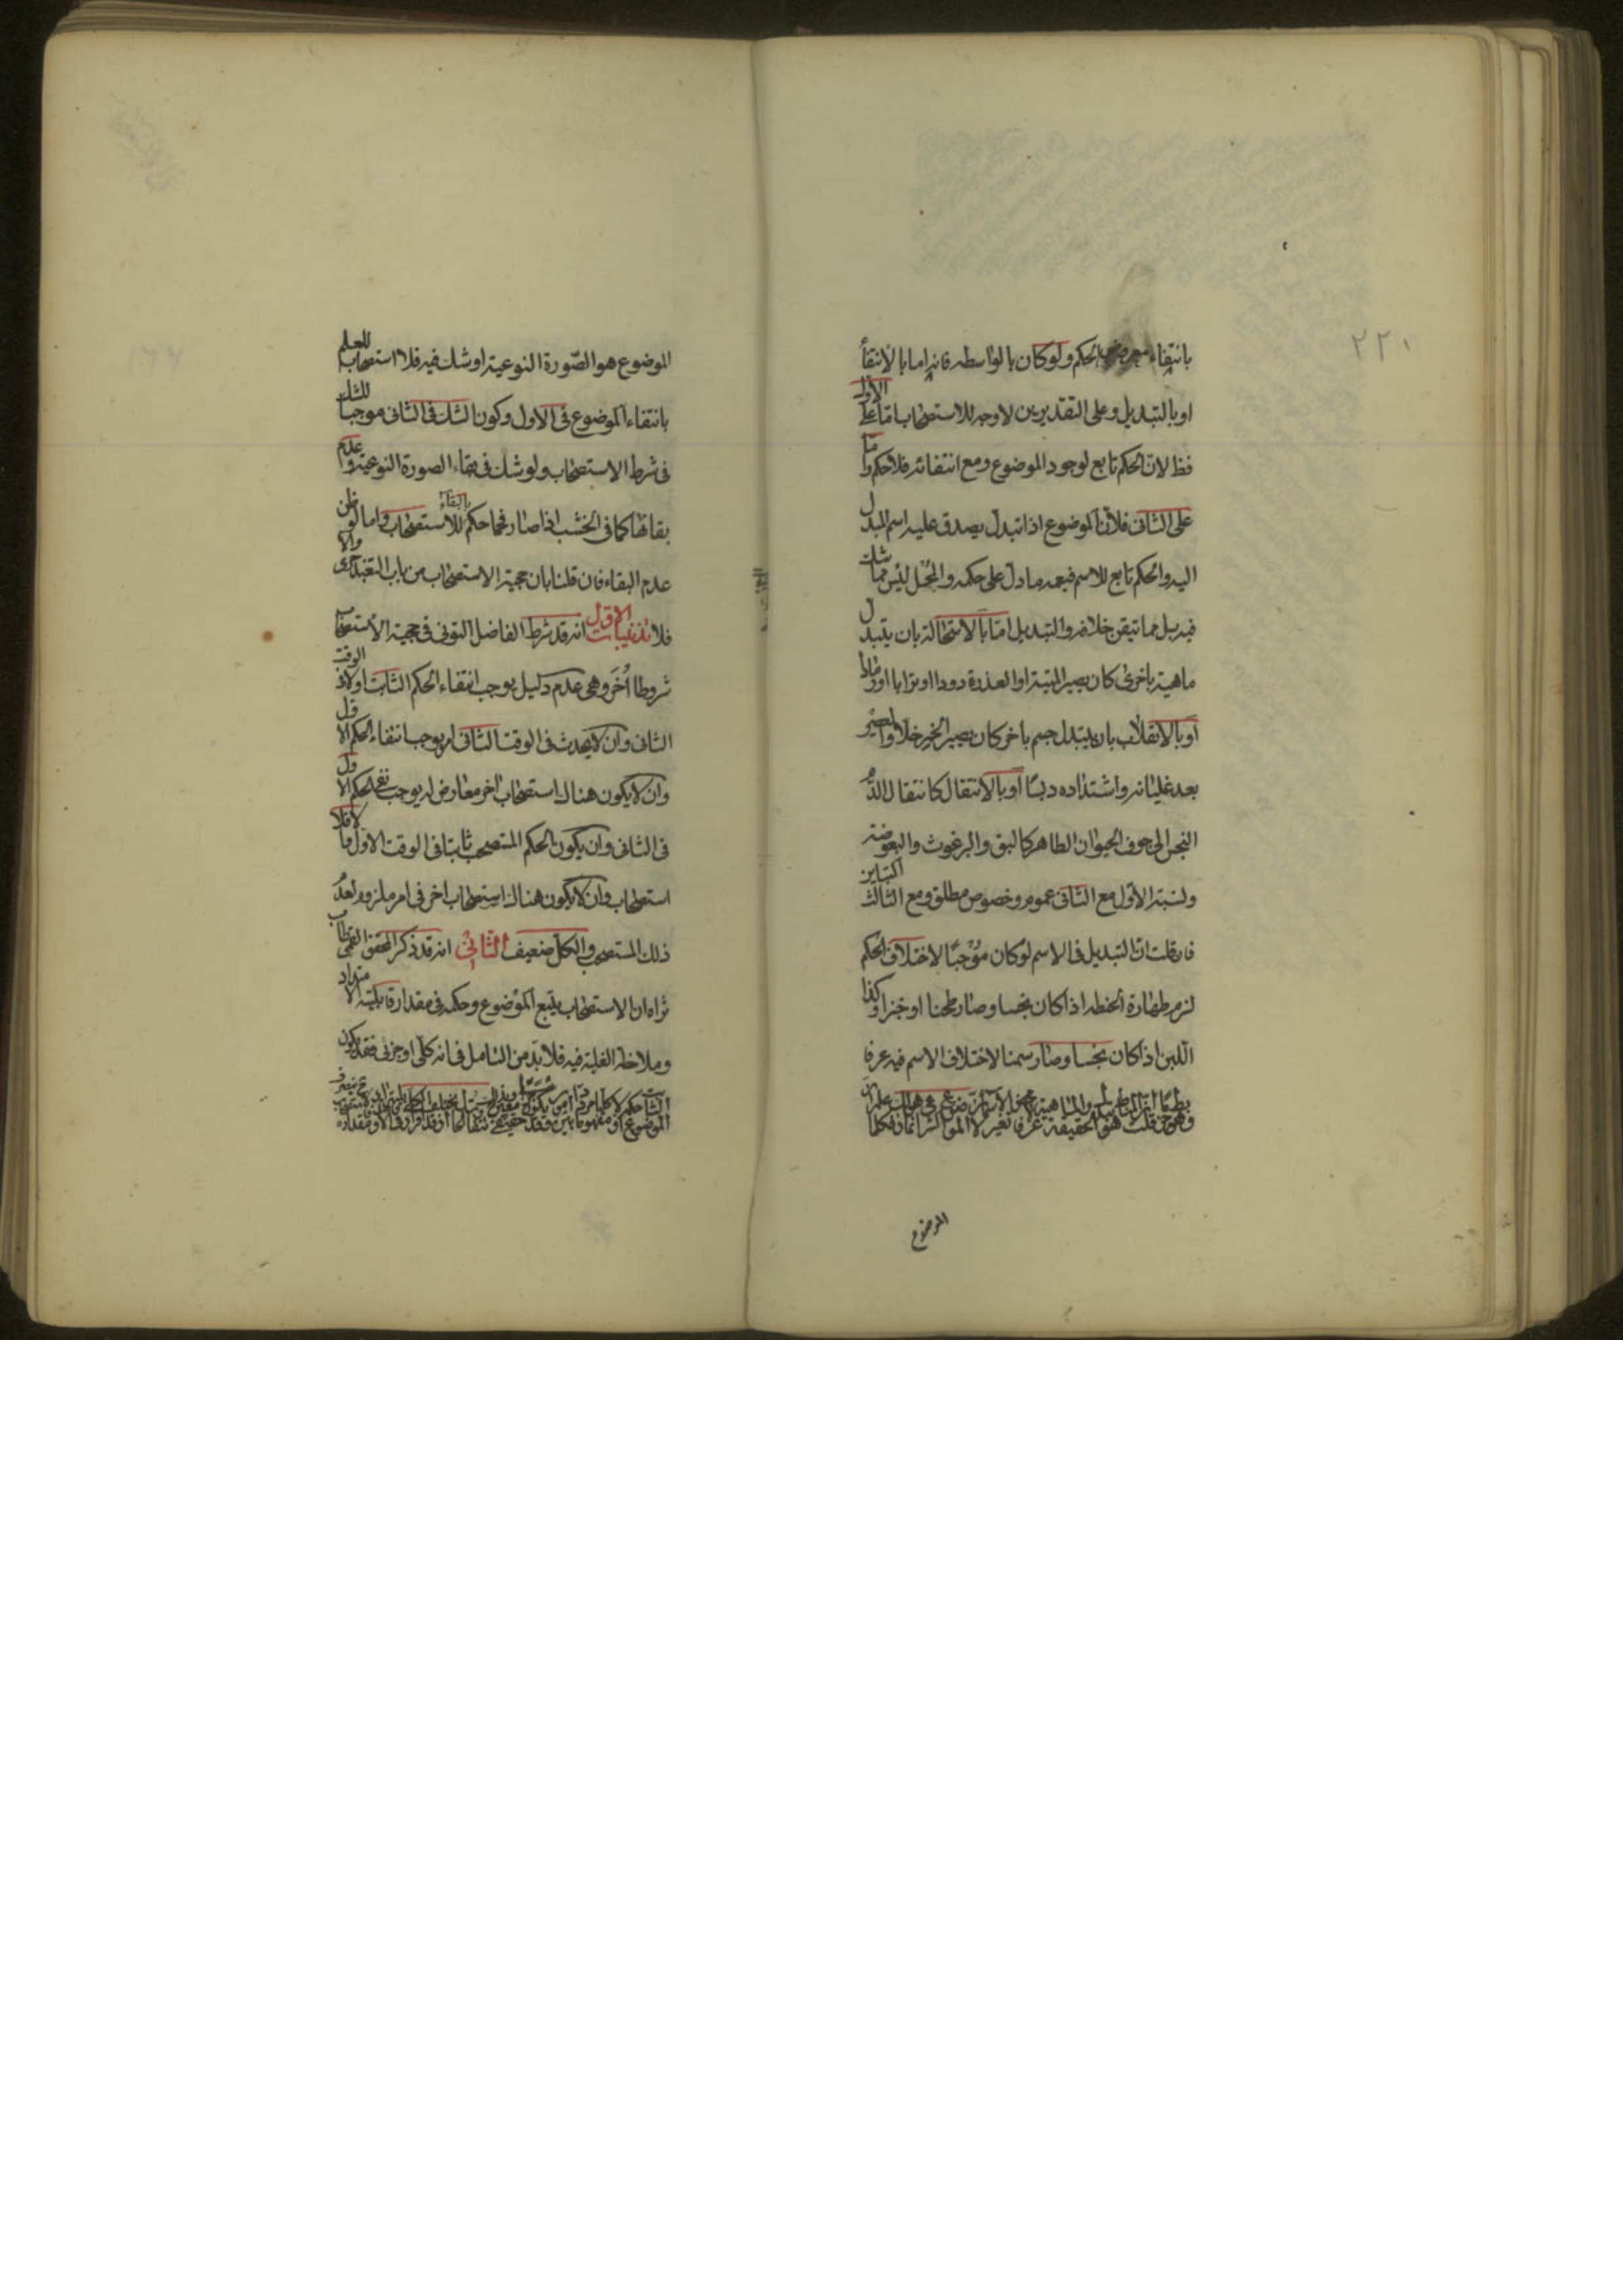 ٢٢٠
بانتفاء معروض الحكم ولو كان بالواسطه فانه اما بالانتفاء
او بالتبديل وعلى التقديرين لا وجه للاستصحاب اما على الاول
فظ لان الحكم تابع لوجود الموضوع ومع انتفائه فلا حكم واما
على الثانى فلان الموضوع اذا تبدل يصدق عليه اسم المبدل
اليه والحكم تابع للاسم فيعمه ما دل على حكمه والمحل ليس مما شك
فيه بل مما تيقن خلافه والتبديل اما بالاستحالة بان يتبدل
ماهية باخرى كان يصير الميتة او العذرة دودا او ترابا او رمادا
او بالانقلاب بان يتبدل جسم باخر كان يصير الخمر خلا والعصير
بعد غليانه واشتداده دبسًا او بالانتقال كانتقال الدم
النجس الى جوف الحيوان الطاهر كالبق والبرغوث والبعوضة
ونسبة الاول مع الثانى عموم وخصوص مطلق ومع الثالث التباين
فان قلت ان التبديل فى الاسم لو كان موجبًا لاختلاف الحكم
لزم طهارة الحنطه اذا كان نجسا وصار طحنا او خبزا وكذا
اللبن اذا كان نجسا وصار سمنا لاختلاف الاسم فيه عرفا
الموضوع
الموضوع هو الصورة النوعية او شك فيه فلا استصحاب للعلم
بانتفاء الموضوع فى الاول وكون الشك فى الثانى موجبا للشك
فى شرط الاستصحاب ولو شك فى بقاء الصورة النوعية وعدم
بقائها كما فى الخشب اذا صار فحما حكم بالبقاء للاستصحاب واما لو ظن
عدم البقاء فان قلنا بان حجية الاستصحاب من باب التعبد جرى والا
فلا تذنيبات الاول انه قد شرط الفاضل التونى فى حجية الاستصحاب
شروطا أخر وهى عدم دليل يوجب انتفاء الحكم الثابت اولا فى الوقت
الثانى وان لا يحدث فى الوقت الثانى امر يوجب انتفاء الحكم الاول
وان لا يكون هناك استصحاب اخر معارض له يوجب نفى الحكم الاول
فى الثانى وان يكون الحكم المستصحب ثابتا فى الوقت الاول والا فلا
استصحاب وان لا يكون هناك استصحاب اخر فى امر ملزوم لعدم
ذلك المستصحب والكل ضعيف الثانى انه قد ذكر المحقق القمى طاب
ثراه ان الاستصحاب يتبع الموضوع وحكمه فى مقدار قابلية الامتداد
وملاحظة الغلبة فيه فلا بد من التامل فى انه كلى او جزئى فقد يكون